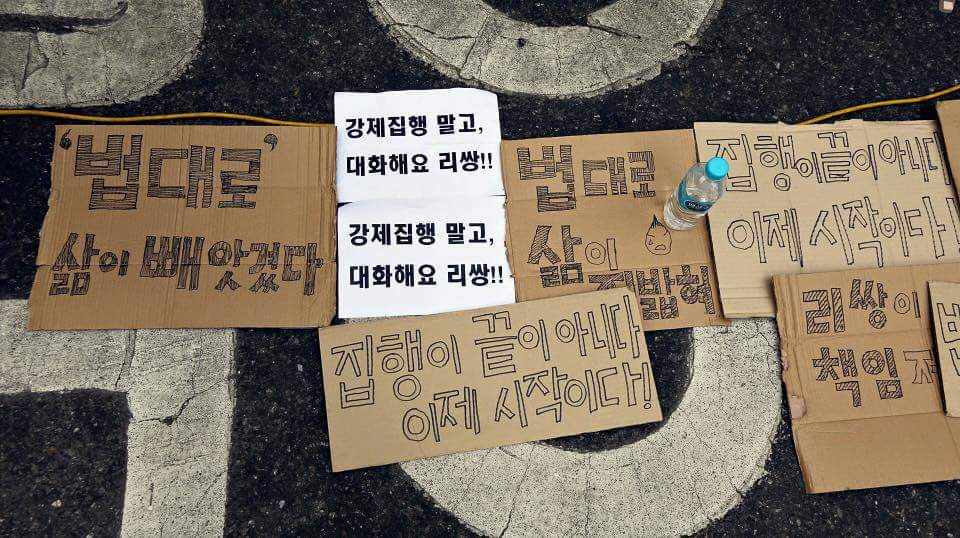 '법대로'
삶이 빼앗겼다
강제집행 말고,
대화해요 리쌍!!
강제집행 말고,
대화해요 리쌍!!
법대로
삶이
집행이 끝이 아니다
이제 시작이다!
집행이 끝이 아니다
이제 시작이다!
리쌍이
책임